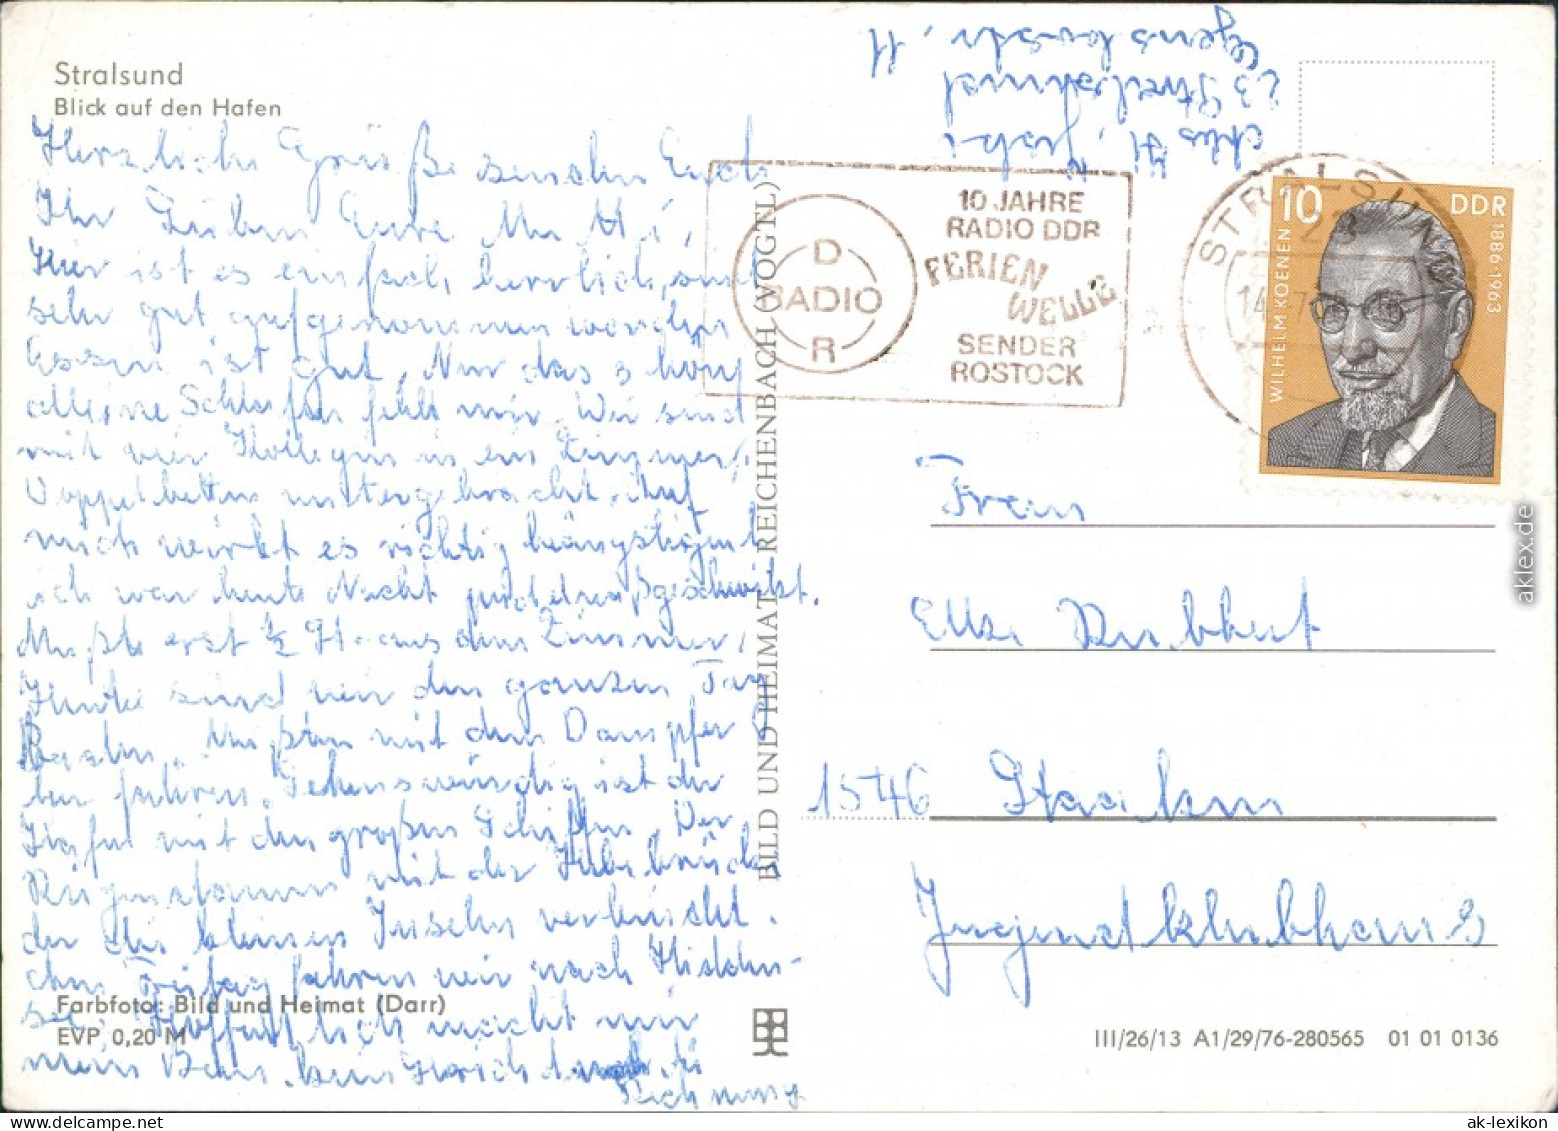 Stralsund
Blick auf den Hafen
Herzliche Grüße senden Euch
Ihr Lieben Eure
Hier ist es einfach herrlich, sind
sehr gut aufgenommen worden
Essen ist gut, Nur das schön
alleine Schlafen fehlt mir. Wir sind
mit vier Kollegin in ein Zimmer,
Doppelbetten untergebracht. Auf
mich wirkt es richtig beängstigent
ich war heute Nacht geschwitzt.
Mußte erst ½ St. aus dem Zimmer,
Heute sind wir den ganzen Tag
Baden. Mußten mit dem Dampfer
fahren. Sehenswürdig ist der
Hafen mit den großen Schiffen. Der
Rügendamm mit der
der die kleinen Inseln verbindet.
Am Freitag fahren wir nach Hidden-
see. Hoffentlich macht mir
mein
Rechnung
Farbfoto: Bild und Heimat (Darr)
EVP 0,20 M
BILD UND HEIMAT · REICHENBACH (VOGTL)
23 Stralsund
11
D
RADIO
R
10 JAHRE
RADIO DDR
FERIEN
WELLE
SENDER
ROSTOCK
STRALSUND
23
10
DDR
WILHELM KOENEN
1886-1963
Frau
Elke
1546 Staaken
Jugendklubhaus
III/26/13 A1/29/76-280565 01 01 0136
aklex.de
ak-lexikon